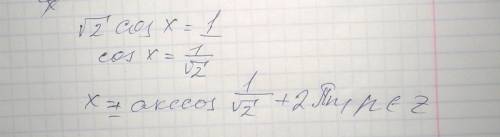 √2 cos x = 1
cos x = 1/√2
x = ± arccos 1/√2 + 2πn, n ∈ z